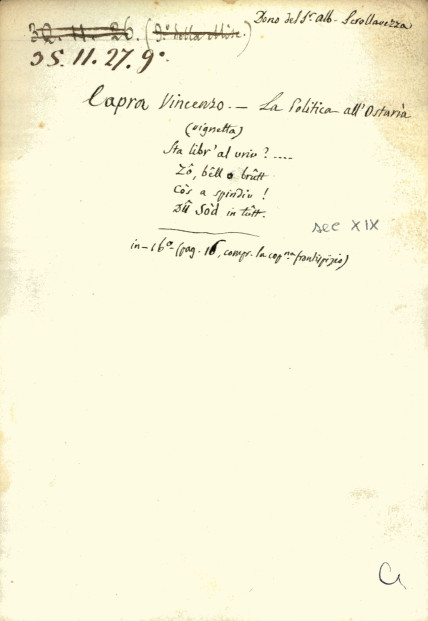 32. 11. 26. (9.° della Misc.)
Dono del Sr. Alb. Scrollavezza
35. 11. 27. 9°
Capra Vincenzo. — La Politica all'Ostaria
(vignetta)
Sta libr' al vriv ? ....
Zô, bêll o brûtt
Còs a spindiv !
Dû Sòd in tûtt.
sec XIX
in-16°. (pag. 16, compr. la copna. frontispizio)